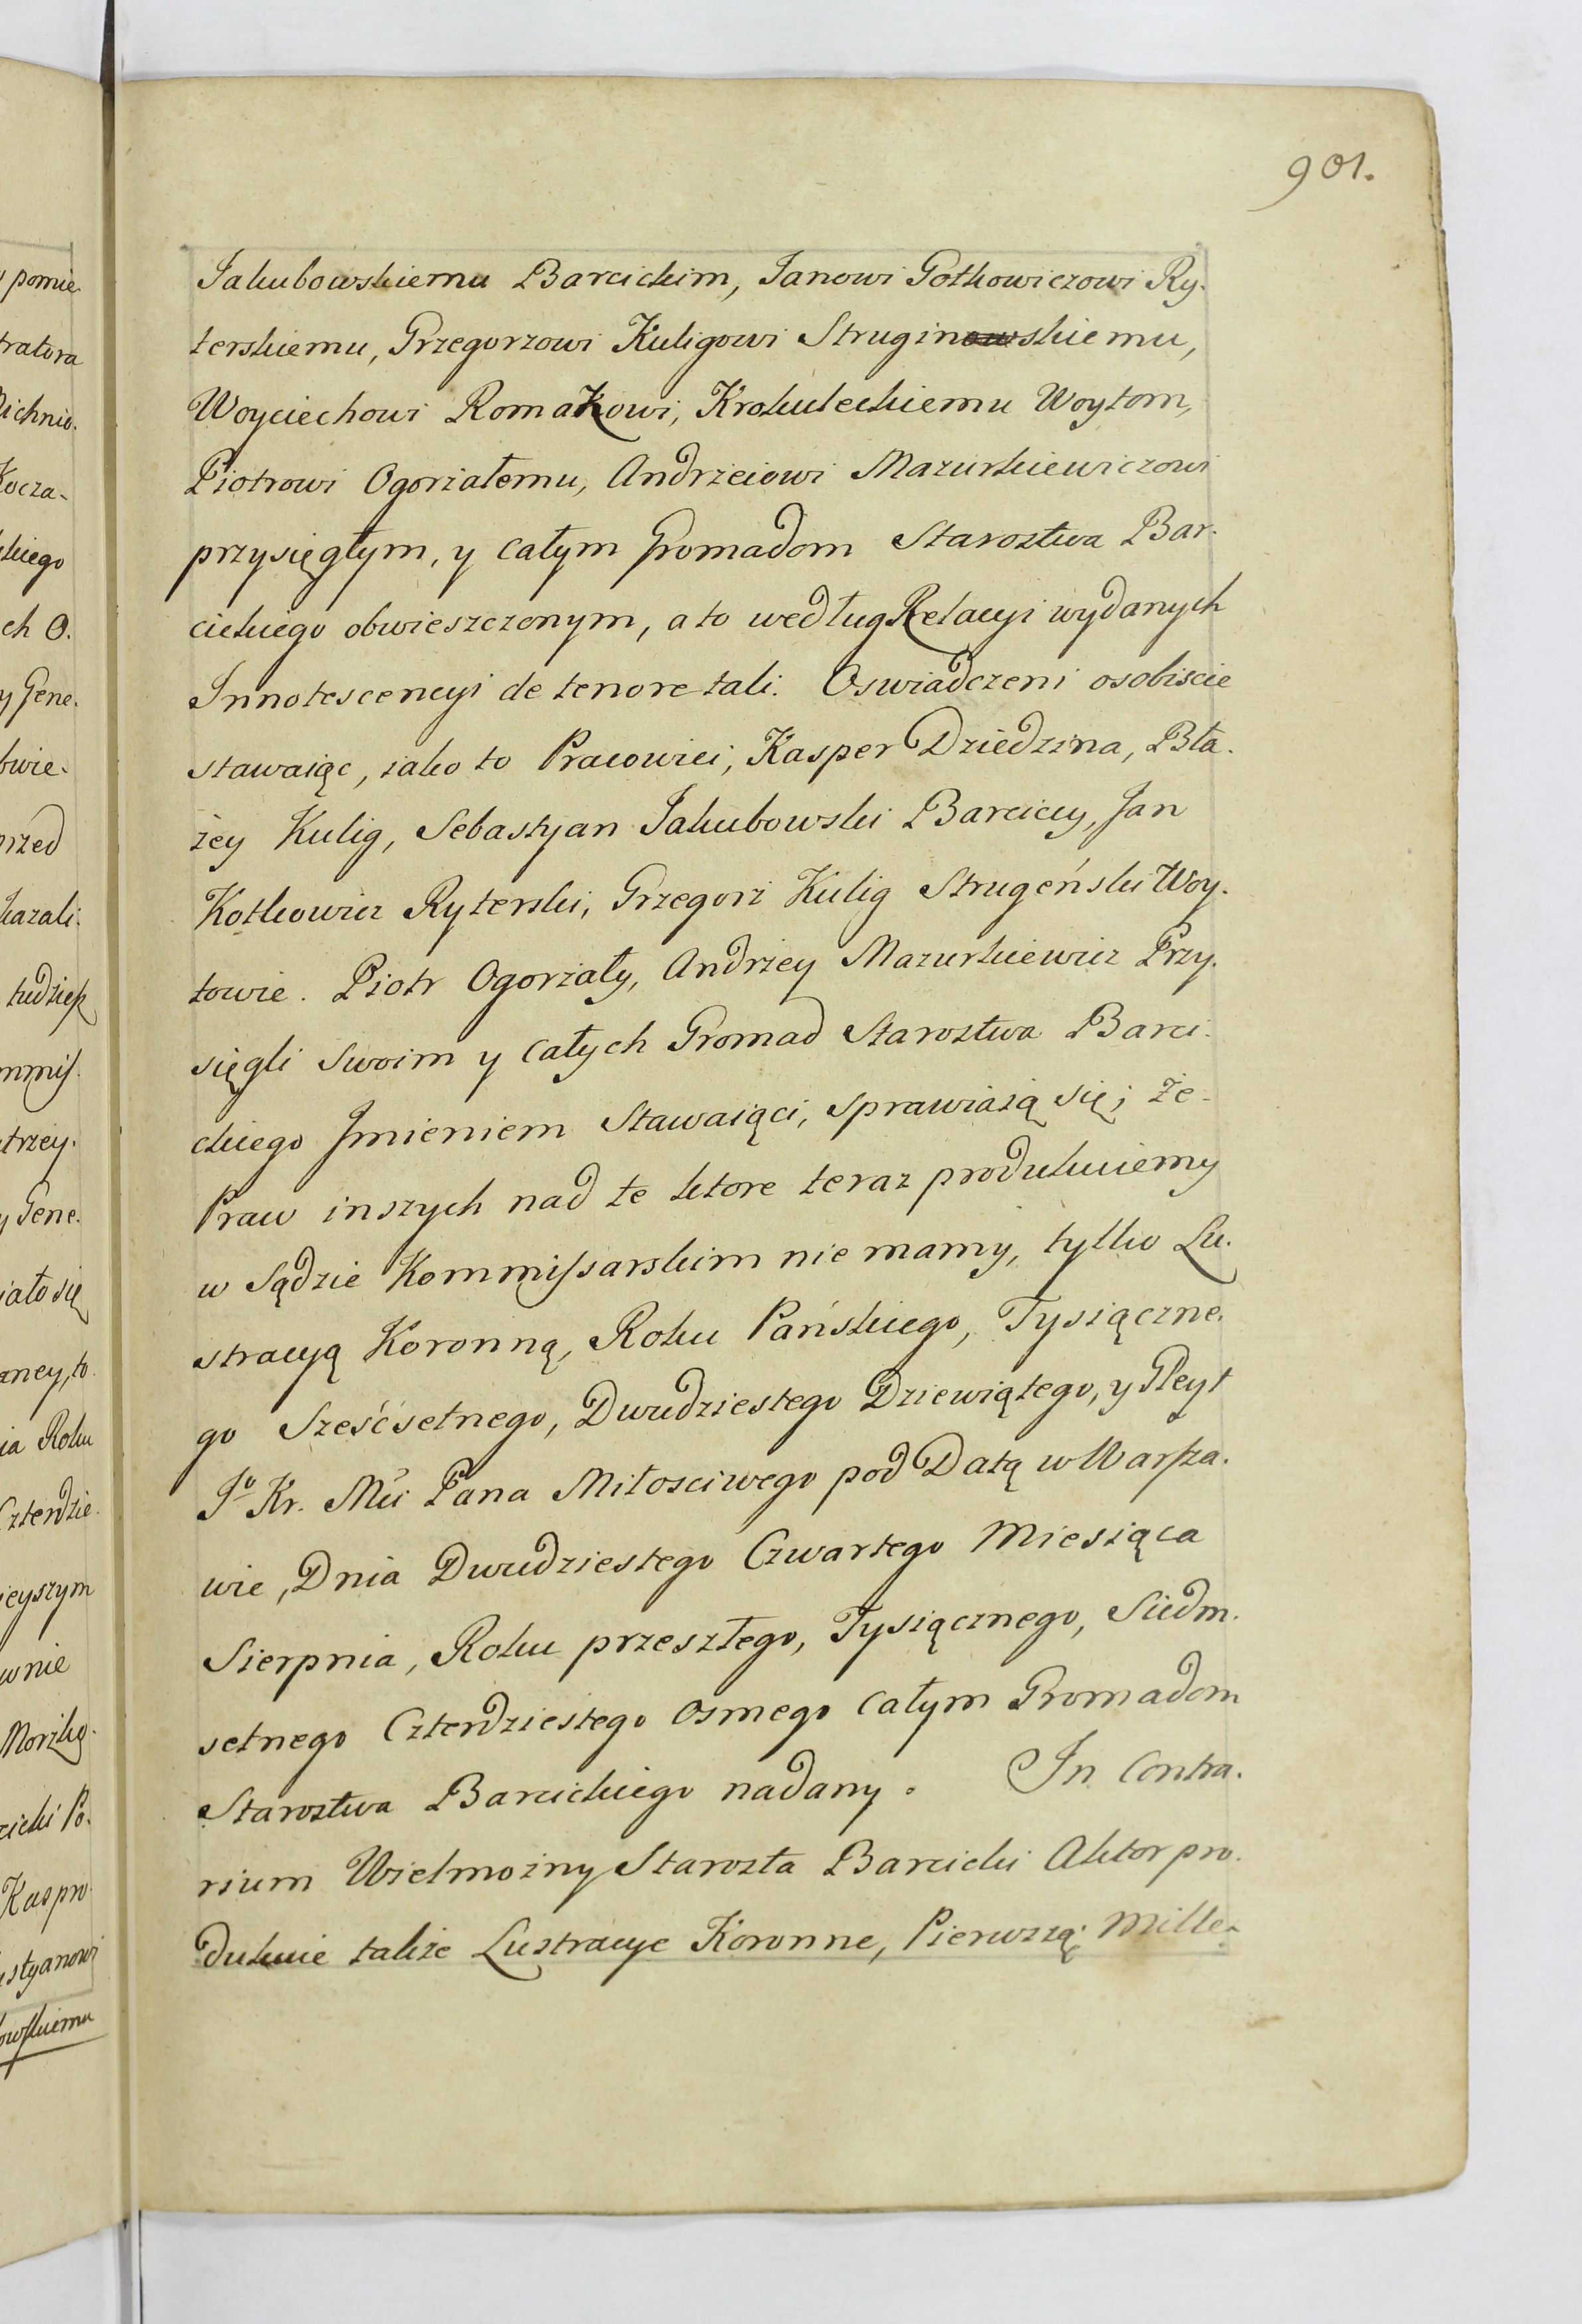 901.
Jakubowskiemu Barcickim, Janowi Gotkowiczowi Ry-
terskiemu, Grzegorzowi Kuligowi Struginowskiemu,
Woyciechowi Romakowi, Krokuleckiemu Woytom,
Piotrowi Ogorzałemu, Andrzeiowi Mazurkiewiczowi
przysięgłym, y całym Gromadom Starostwa Bar-
cickiego obwieszczonym, a to według Relacyi wydanych
Innotescencyi de tenore tali. Oswiadczeni osobiscie
stawaiąc, iako to Pracowici, Kasper Dziedzina, Bła-
żey Kulig, Sebastyan Jakubowski Barciccy, Jan
Kotkowicz Ryterski, Grzegorz Kulig Strugeński Woy-
towie. Piotr Ogorzały, Andrzey Mazurkiewicz Przy-
sięgli Swoim y całych Gromad Starostwa Barci-
ckiego Jmieniem Stawaiąci, sprawiaią się; że
Praw inszych nad te ktore teraz produkuiemy
w Sądzie Kommissarskim nie mamy, tylko Lu-
stracyą Koronną, Roku Pańskiego, Tysiączne-
go Sześćsetnego, Dwudziestego Dziewiątego, y Gleyt
Jo Kr. Mci Pana Miłosciwego pod Datą w Warsza-
wie, Dnia Dwudziestego Czwartego Miesiąca
Sierpnia, Roku przeszłego, Tysiącznego, Siedm-
setnego Czterdziestego Osmego całym Gromadom
Starostwa Barcickiego nadany. In Contra-
rium Wielmożny Starosta Barcicki Aktor pro-
dukuie także Lustracye Koronne, Pierwszą Mille-
y pomie-
tratora
Kocza-
ch O.
y Gene-
bwie-
kazali
tudziesz
trzey-
y Gene-
iało się
aney, to
ia Roku
Czterdzie-
ieyszym
wnie
cicki Po-
Kaspro-
styanowi
owskiemu